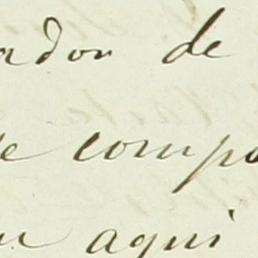 ador de
e compo
u aqui